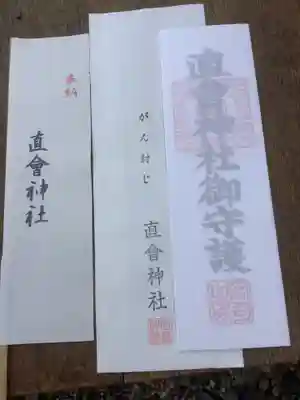 奉納
直會神社
がん封じ
直會神社
直會神社御守護